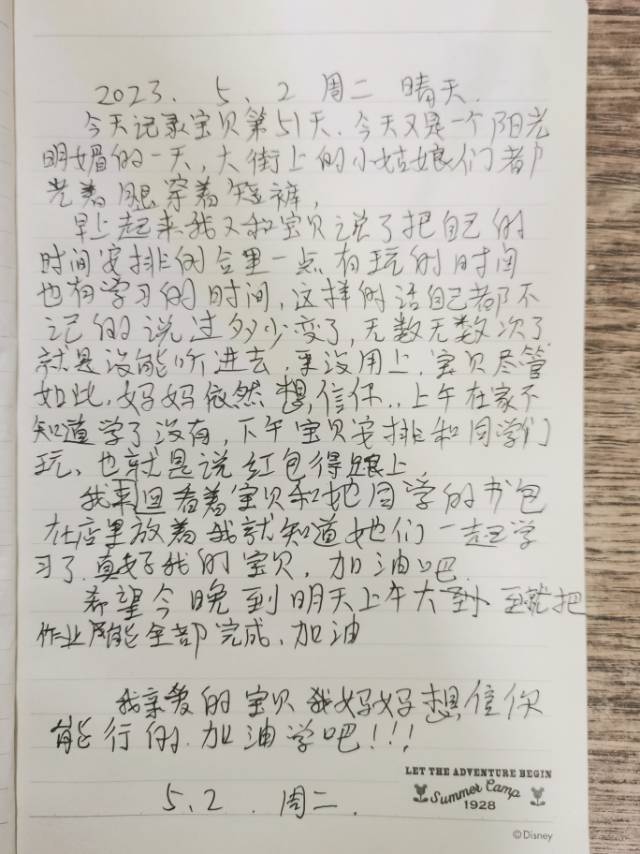 2023. 5. 2 周二 晴天.
今天记录宝贝第51天. 今天又是一个阳光
明媚的一天, 大街上的小姑娘们都
光着腿穿着短裤,
早上起来我又和宝贝说了把自己的
时间安排的合里一点. 有玩的时间
也有学习的时间, 这样的话自己都不
记的说过多少变了, 无数无数次了
就是没能听进去, 来没用上. 宝贝尽管
如此, 妈妈依然想信你.. 上午在家不
知道学了没有, 下午宝贝安排和同学们
玩、也就是说红包得跟上,
我来回看着宝贝和她同学的书包
在店里放着我就知道她们一起学
习了. 真好我的宝贝, 加油吧.
希望今晚到明天上午大到 就把
作业 能全部完成、加油
我亲爱的宝贝我妈妈想信你
能行的. 加油学吧!!!
5.2 . 周二.
LET THE ADVENTURE BEGIN
Summer Camp
1928
©Disney